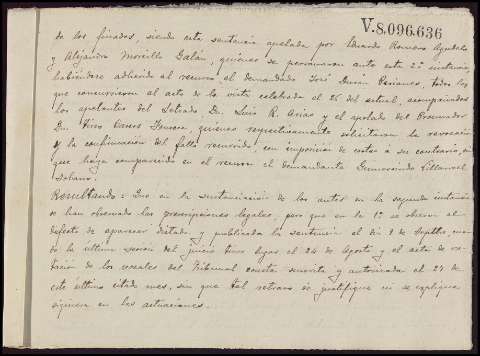 V.8.096.636
de los finados, siendo esta sentencia apelada por Eduardo Romero
y Alejandro Morcillo Galán, quienes se personaron ante esta 2ª instancia,
habiéndose adherido al recurso el demandado José Durán todos los
que concurrieron al acto de la vista celebrada el 26 del actual, acompañados
los apelantes del Letrado Dn. Luis R. Arias y el apelado del Procurador
Dn. quienes respectivamente solicitaron la revocación
y la confirmación del fallo recurrido, con imposición de costas a su contrario, sin
que haya comparecido en el recurso el demandante Gumersindo Villarroel
Solano.
Resultando: Que en la sustanciación de los autos en la segunda instancia
se han observado las prescripciones legales, pero que en la 1ª se observa el
defecto de aparecer dictada y publicada la sentencia el día 2 de Septbre,
la última sesión del juicio tuvo lugar el 24 de Agosto y el acta de vo-
tación de los vocales del Tribunal consta suscrita y autorizada el 27 de
este último citado mes, sin que tal retraso se justifique ni se explique
siquiera en las actuaciones.